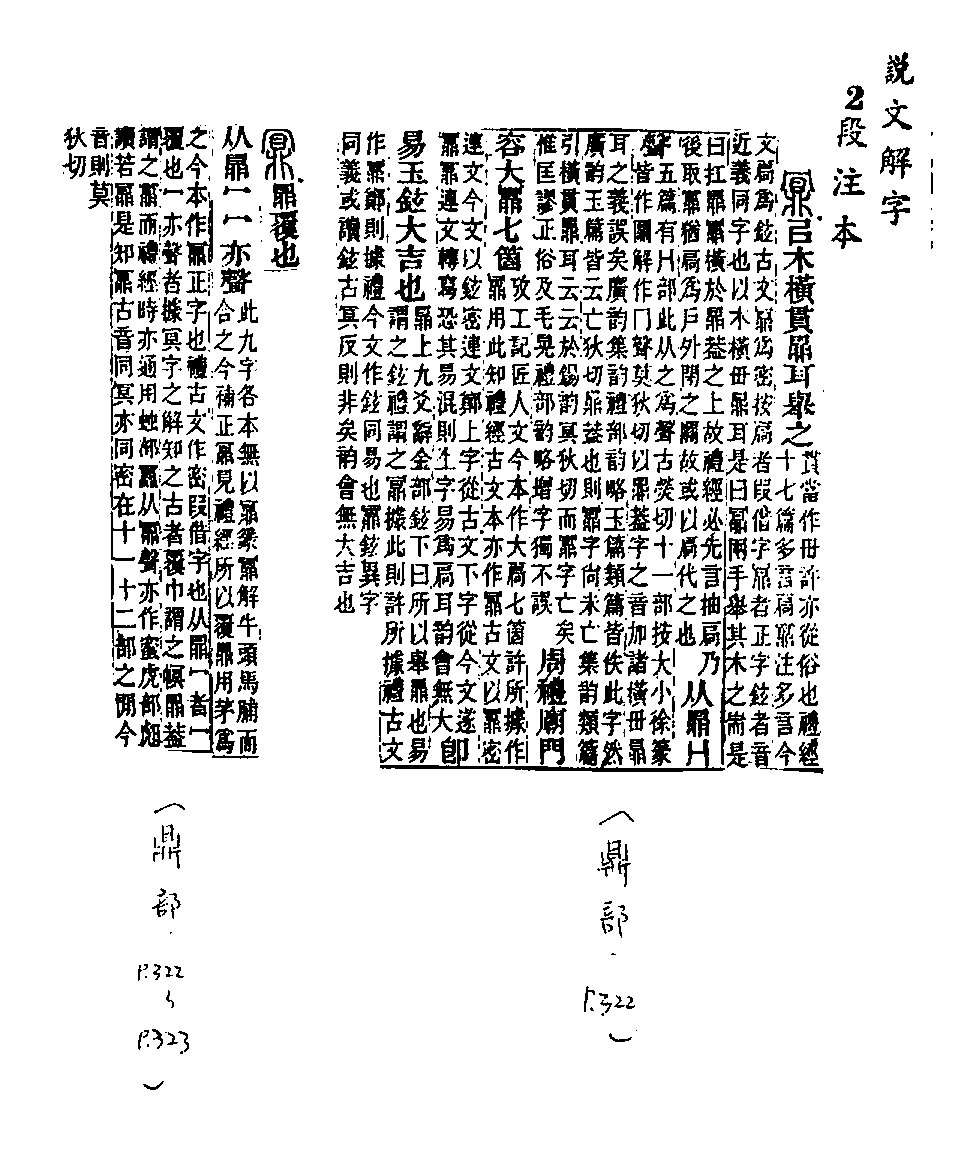 說文解字
2段注本
鼏㠯木橫貫鼎耳舉之
貫當作毌許亦從俗也禮經
十七篇多言扃鼏注多言今
文扃爲鉉古文鼏爲密按扃者叚借字鼏者正字鉉者音
近義同字也以木橫毌鼎耳是曰鼏兩手舉其木之耑是
曰扛鼎鼏橫於鼎葢之上故禮經必先言抽扃乃
後取鼏猶扃爲戶外閉之關故或以扃代之也
从鼎冂
聲
五篇有冂部此从之爲聲古熒切十一部按大小徐篆
皆作鼏解作冖聲莫狄切以鼎葢字之音加諸橫毌鼎
耳之義誤矣廣韵集韵禮部韵略玉篇類篇皆佚此字然
廣韵玉篇皆云亡狄切鼎葢也則鼏字尚未亡集韵類篇
引橫貫鼎耳云云於錫韵冥狄切而鼏字亡矣
惟匡謬正俗及毛晃禮部韵略增字獨不誤
周禮廟門
容大鼏七箇
攷工記匠人文今本作大扃七箇許所據作
鼏用此知禮經古文本亦作鼏古文以鼏密
連文今文以鉉密連文鄭上字從古文下字從今文遂
鼏鼏連文轉寫恐其易混則上字易爲扃耳韵會無大
卽
易玉鉉大吉也
鼎上九爻辭金部鉉下曰所以舉鼎也易
謂之鉉禮謂之鼏據此則許所據禮古文
作鼏鄭則據禮今文作鉉同易也鼏鉉異字
同義或讀鉉古冥反則非矣韵會無大吉也
(鼎部.P.322)
鼏鼎覆也
从鼎冖冖亦聲
此九字各本無以鼏篆鼏解牛頭馬脯而
合之今補正鼏見禮經所以覆鼎用茅爲
之今本作鼏正字也禮古文作密叚借字也从鼎冖者冖
覆也冖亦聲者據冥字之解知之古者覆巾謂之幎鼎葢
謂之鼏而禮經時亦通用䖵部鼏从鼏聲亦作蜜虎部䖑
讀若鼏是知鼏古音同冥亦同密在十一十二部之閒今
音則莫
狄切
(鼎部.P.322~P.323)